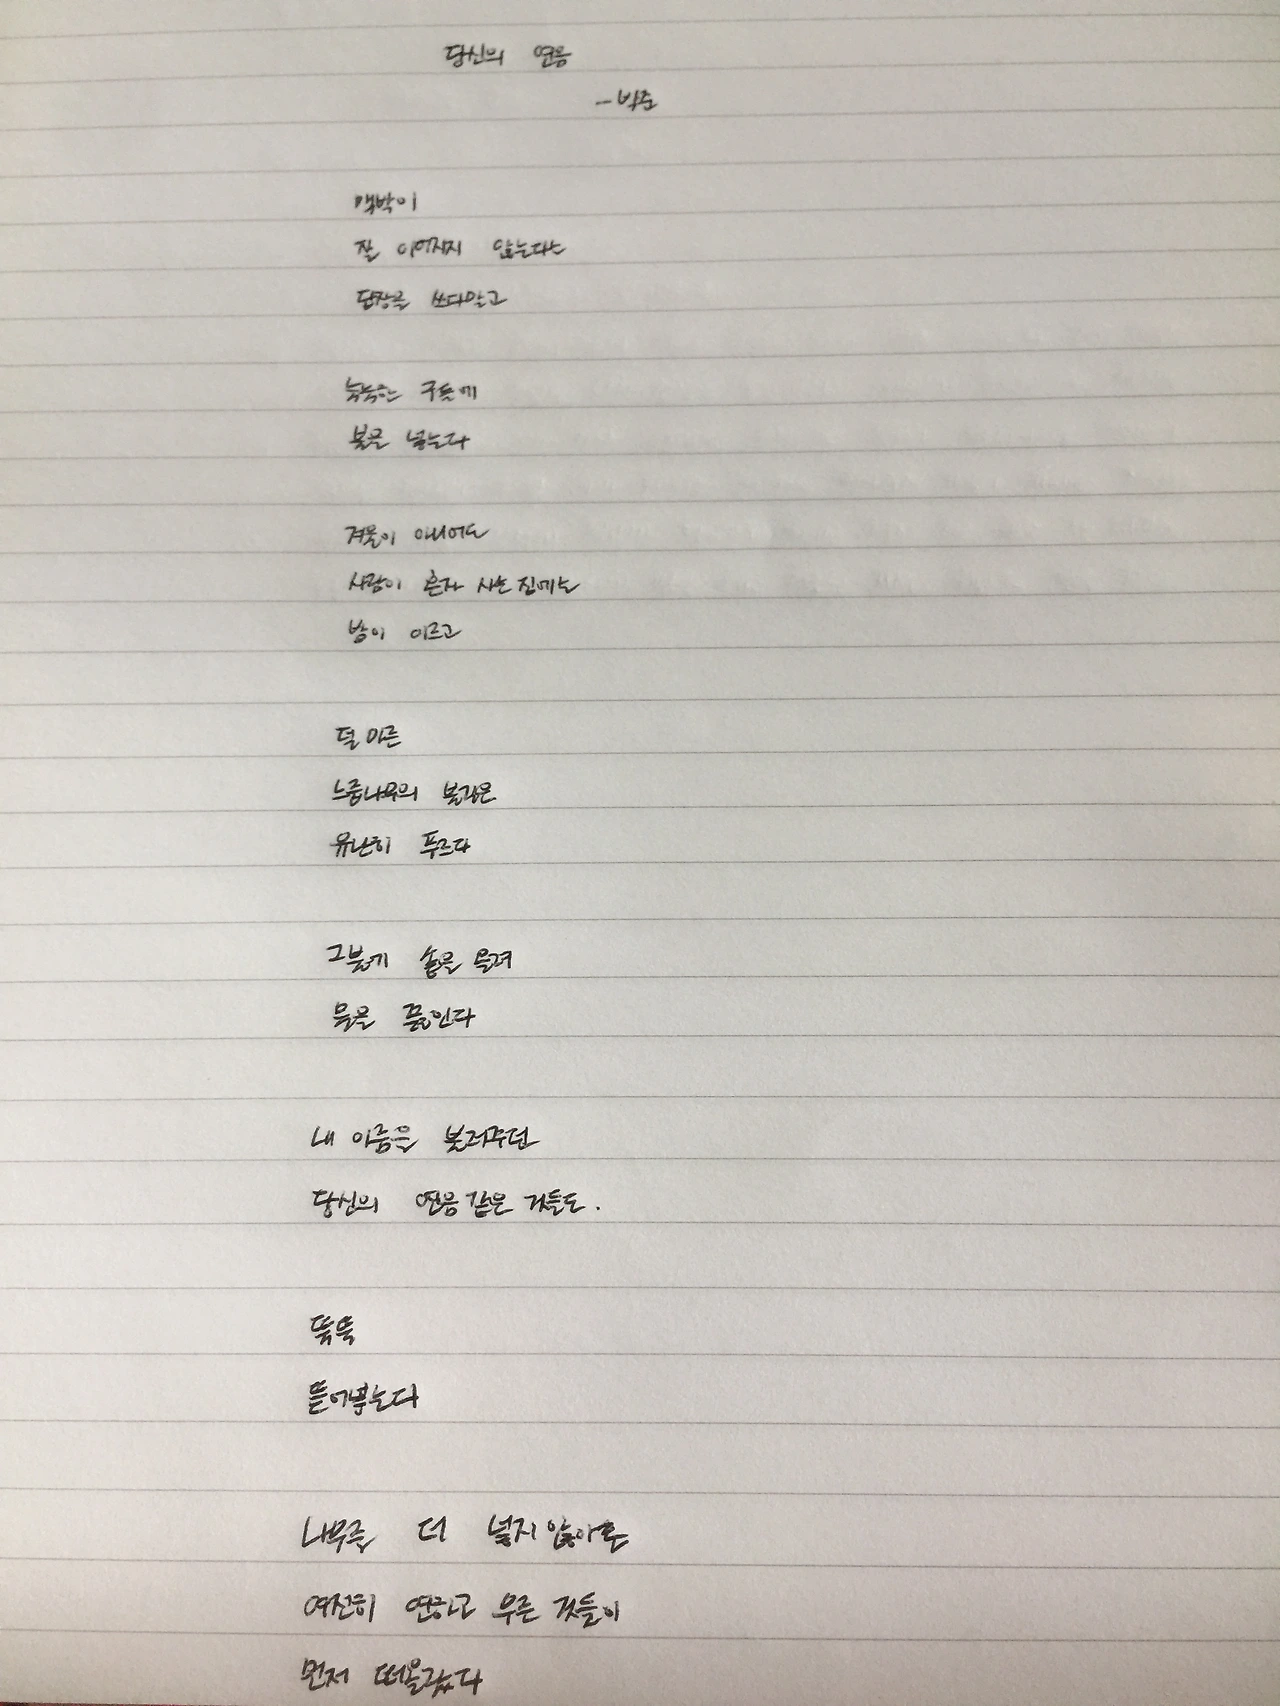 당신의 연음
- 박준
맥박이
잘 이어지지 않는다는
답장을 쓰다말고
눅눅한 구들에
불을 넣는다
겨울이 아니어도
사람이 혼자 사는 집에는
밤이 이르고
덜 마른
느릅나무의 불길은
유난히 푸르다
그 불에 솥을 올려
물을 끓인다
내 이름을 불러주던
당신의 연음 같은 것들도.
뚝뚝
뜯어넣는다
나무를 더 넣지 않아도
여전히 연하고 무른 것들이
먼저 떠올랐다